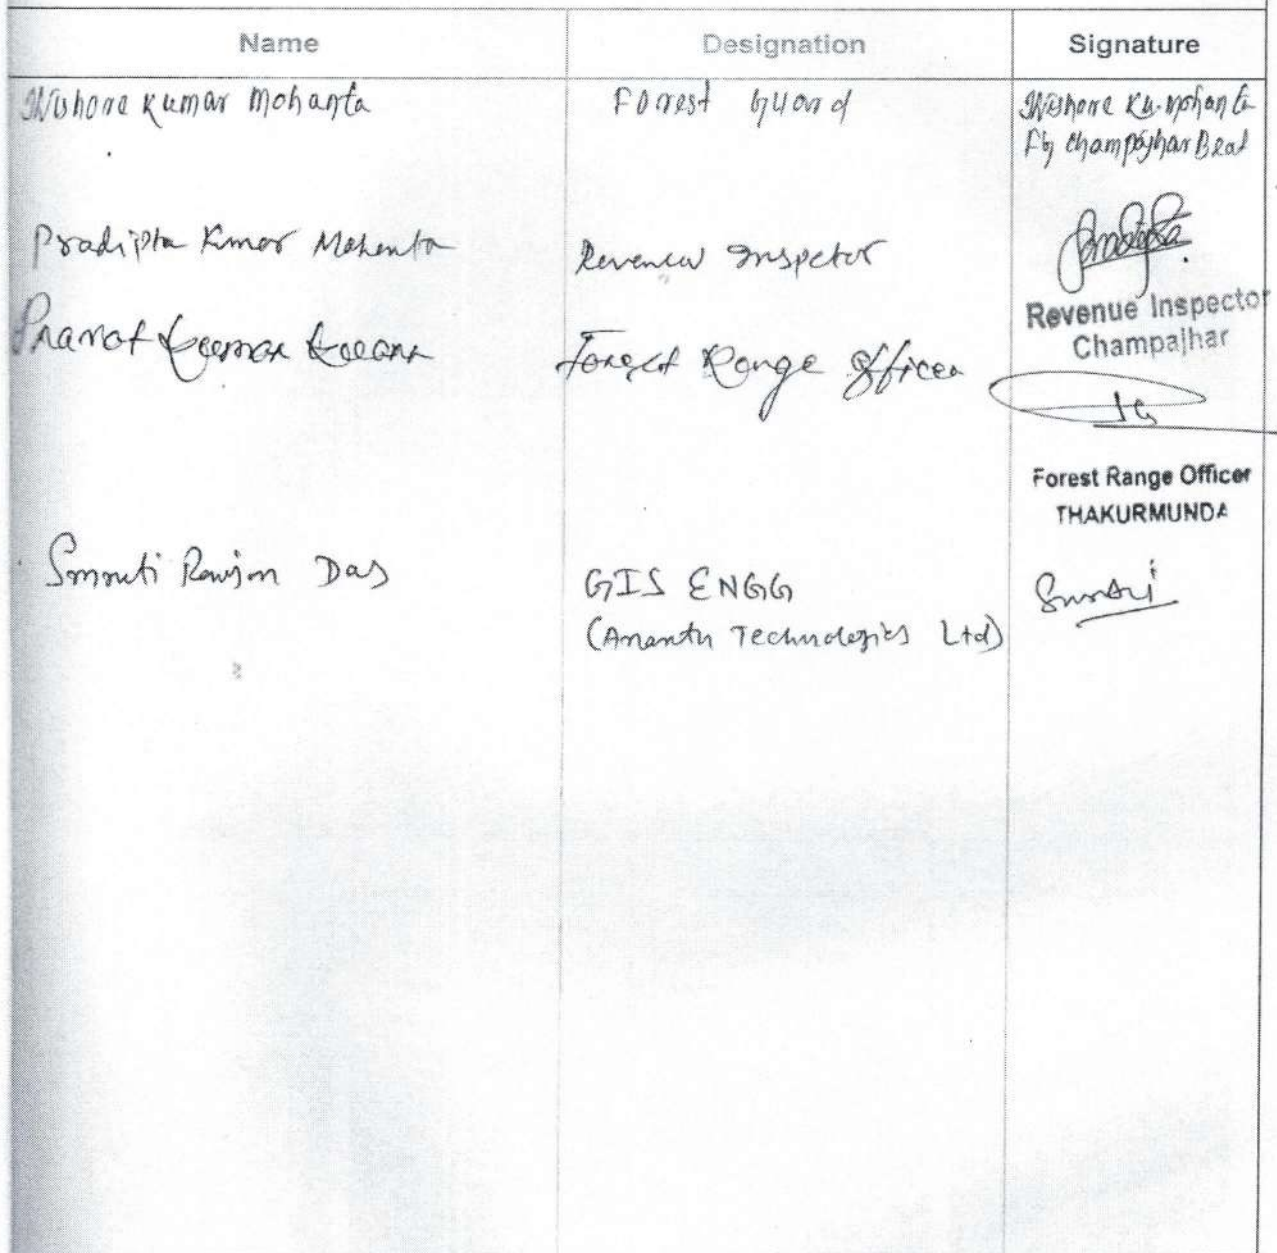 Name Designation Signature
Kumar Mohanta Forest Guard Ku. Mohanta
Fg Champajhar Beat
Pradipta Kumar Mohanta Revenue Inspector
Revenue Inspector
Champajhar
Forest Range Officer
Forest Range Officer
THAKURMUNDA
Smruti Ranjan Das GIS ENGG Smruti
(Ananth Technologies Ltd)